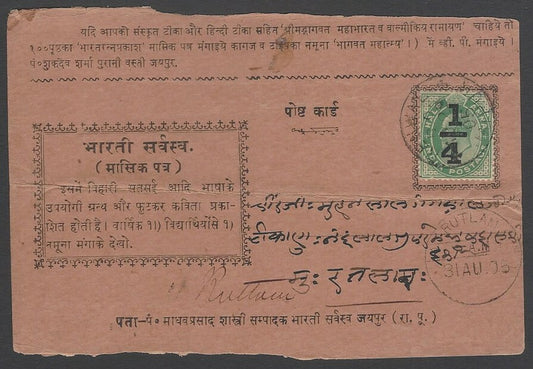 यदि आपको संस्कृत टीका और हिन्दी टीका सहित 'श्रीमद्भागवत महाभारत व वाल्मीकिय रामायण' चाहिये तो
१००पृष्टका 'भारतरत्नप्रकाश' मासिक पत्र मंगाइये कागज व टाईपका नमूना 'भागवत महात्म्य'। में व्ही. पी. मंगाइये।
पं०शुकदेव शर्मा पुरानी वस्ती जयपुर.
पोष्ट कार्ड
1/4
POSTAGE
भारती सर्वस्व.
(मासिक पत्र)
इसमें विहारी सतसई आदि भाषाके
उपयोगी ग्रन्थ और फुटकर कविता प्रका-
शित होती है। वार्षिक १।) विद्यार्थियोंसे १)
नमूना मंगाके देखो.
मुः रतलाम:
Rutlam
RUTLAM
31 AU. 06
पता-पं० माधवप्रसाद शास्त्री सम्पादक भारती सर्वस्व जयपुर (रा. पू.)